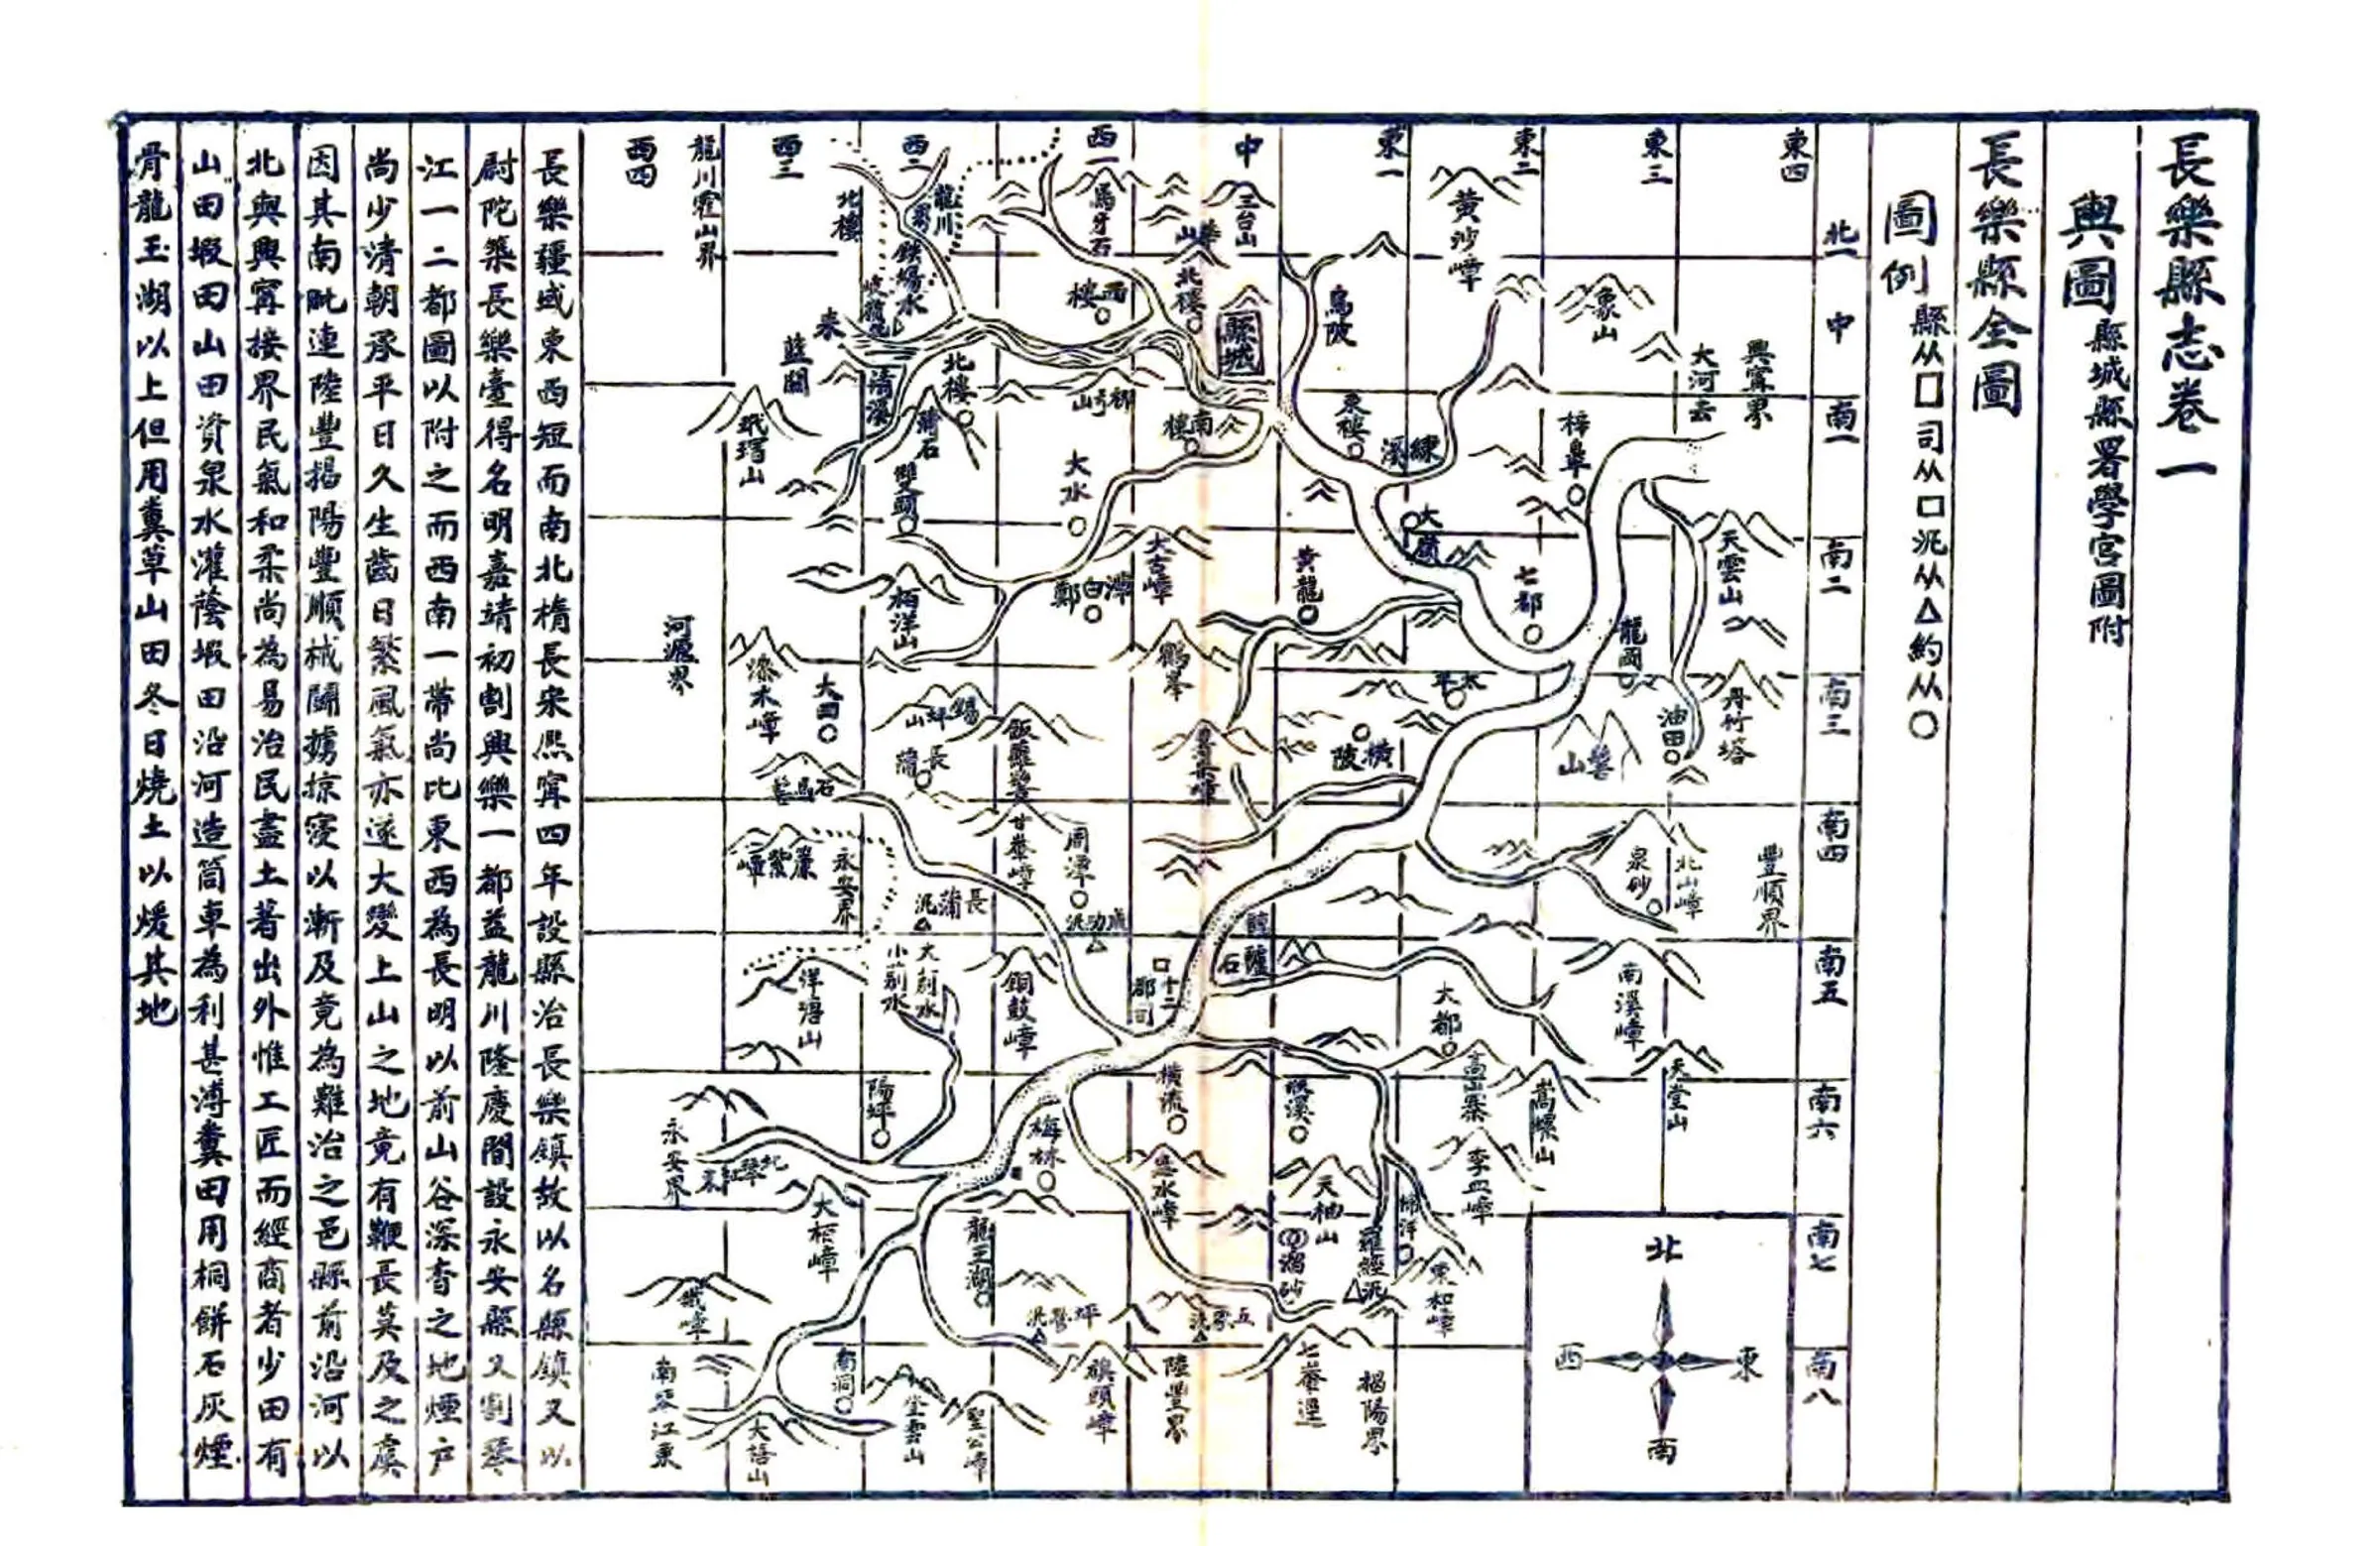 長樂縣志卷一
輿圖縣城縣署學宮圖附
長樂縣全圖
圖例縣从□司从□汛从△約从○
東四
東三
東二
東一
中
西一
西二
西三
西四
北一
中
南一
南二
南三
南四
南五
南六
南七
南八
興寧界
大河去
象山
黃沙嶂
烏陂
三台山
縣城
北樓
馬牙石
西樓
龍川
鉄場水
北樓
龍川霍山界
藍關
來
清溪
北樓
蒲石
玳瑁山
雙頭
大水
南樓
東樓
練溪
梓皐
大嵩
天雲山
七都
龍岡
黃龍
大古嶂
栢洋山
河源界
漆木嶂
大田
鶴峯
太平
橫陂
油田
丹竹塔
錫坪山
長蒲
石馬
周潭
永安界
長蒲汛
泉砂
北山嶂
豐順界
南溪嶂
大都
十二都司
銅鼓嶂
洋塘山
天堂山
嵩螺山
高山寨
橫流
梅林
陽坪
永安界
大梧嶂
龍王湖
天柚山
羅經汛
東和嶂
坪磐汛
陸豐界
旗頭嶂
七峯逕
揭陽界
聖公嶂
登雲山
南洞
大語山
南琴江來
北
東
南
西
長樂疆域東西短而南北橢長宋熙寧四年設縣治長樂鎮故以名縣鎮又以
尉陀築長樂臺得名明嘉靖初割興樂一都益龍川隆慶間設永安縣又割琴
江一二都圖以附之而西南一帶尚比東西為長明以前山谷深杳之地煙戶
尚少清朝承平日久生齒日繁風氣亦遂大變上山之地竟有鞭長莫及之虞
因其南毗連陸豐揭陽豐順械鬭擄掠寖以漸及竟為難治之邑縣前沿河以
北與興寧接界民氣和柔尚為易治民盡土著出外惟工匠而經商者少田有
山田塅田山田資泉水灌蔭塅田沿河造筒車為利甚溥糞田用桐餅石灰煙
骨龍玉湖以上但用糞草山田冬日燒土以煖其地